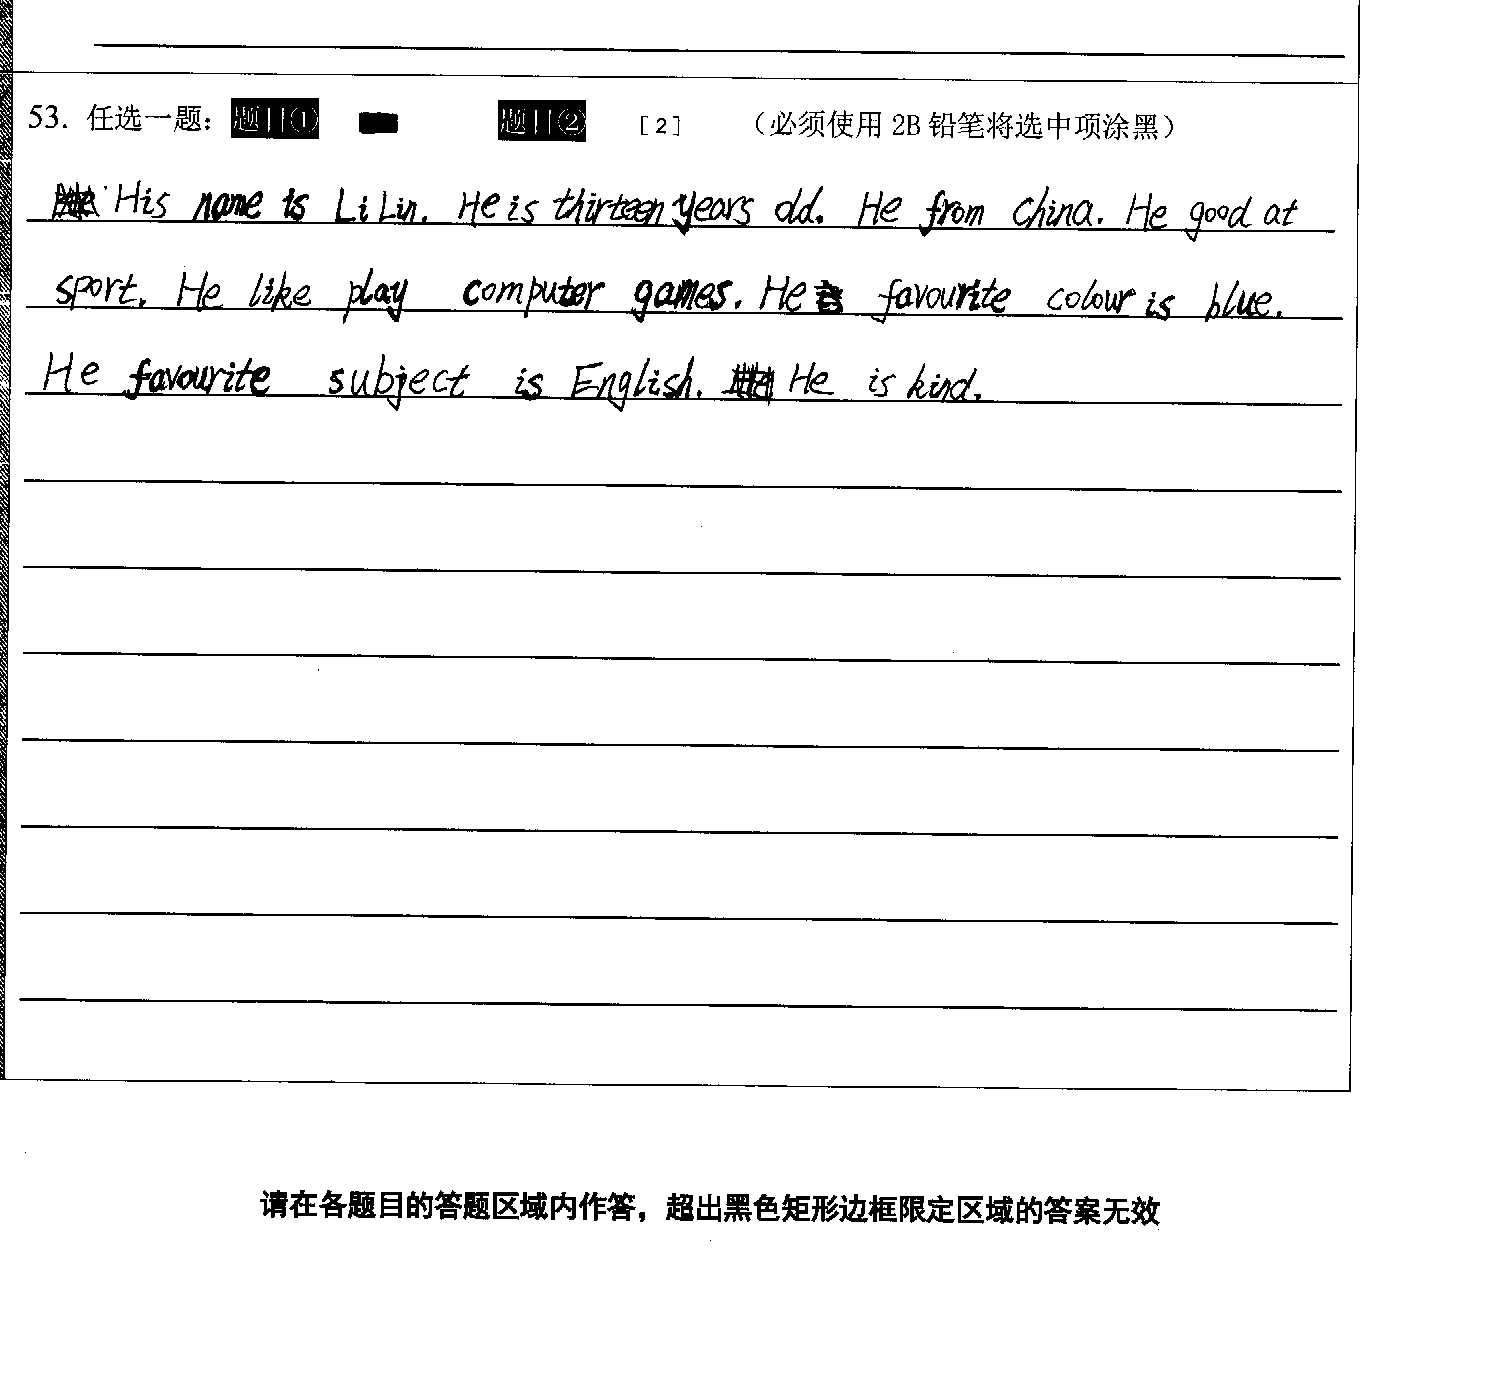 53. 任选一题: 题目① 题目② [2] (必须使用 2B 铅笔将选中项涂黑)
His name is Li Lin. He is thirteen years old. He from China. He good at
sport. He like play computer games. He favourite colour is blue.
He favourite subject is English. He is kind.
请在各题目的答题区域内作答，超出黑色矩形边框限定区域的答案无效